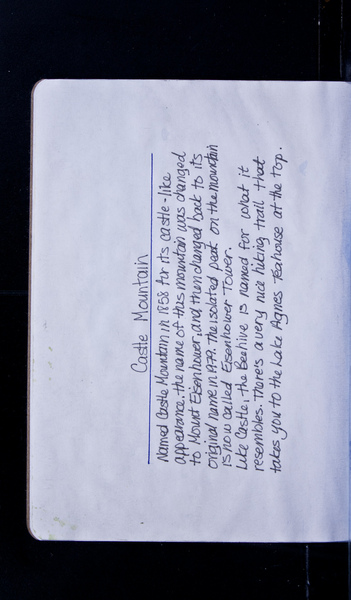 Castle Mountain
Named Castle Mountain in 1858 for its castle-like
appearance. the name of this mountain was changed
to Mount Eisenhower, and then changed back to its
original name in 1979. the isolated peak on the mountain
is now called Eisenhower Tower.
Like Castle, the Beehive is named for what it
resembles. There's a very nice hiking trail that
takes you to the Lake Agnes Teahouse at the top.